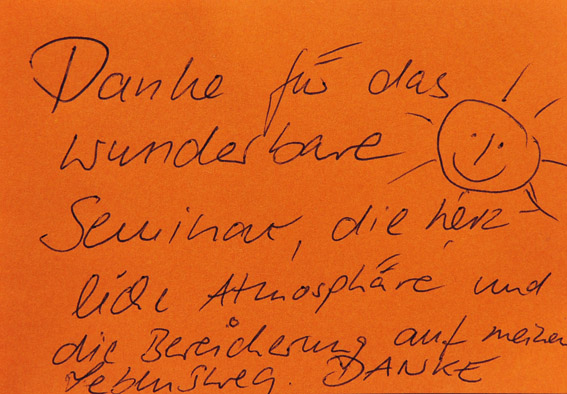 Danke für das
wunderbare
Seminar, die herz-
liche Atmosphäre und
die Bereicherung auf meinem
Lebensweg. DANKE